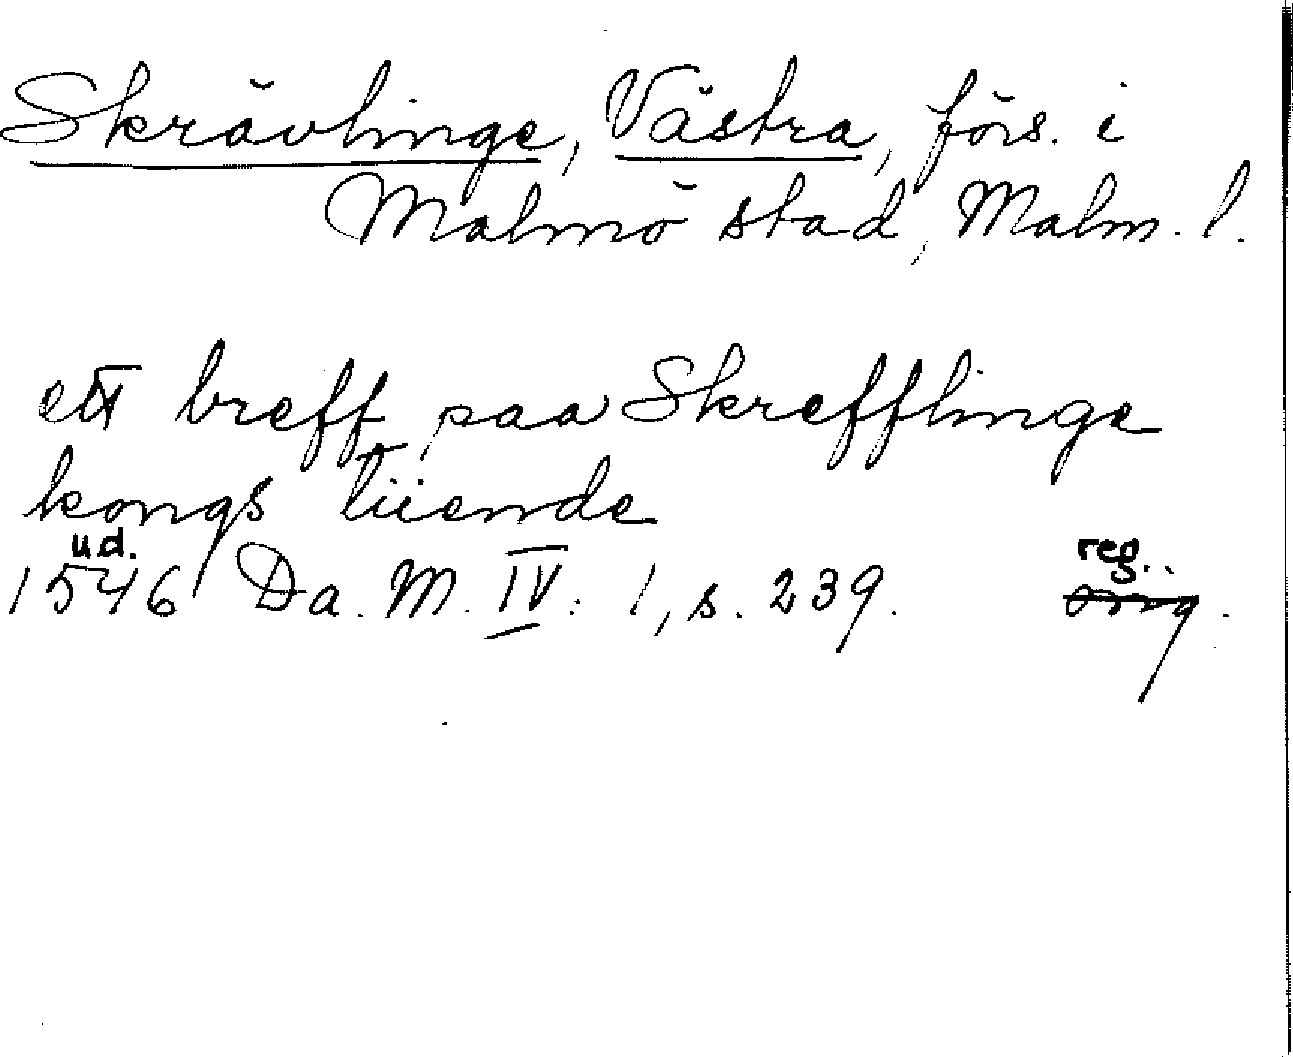 Skrävlinge, Västra, förs. i
Malmö stad, Malm. l.
ett breff paa Skrefflinge
kongs tiiende
u.d. reg.
1546 Da. M. IV: 1, s. 239. orig.